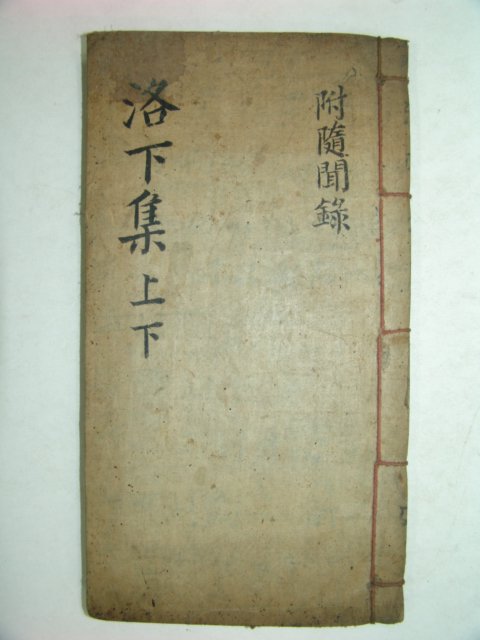 附隨聞錄
洛下集 上下